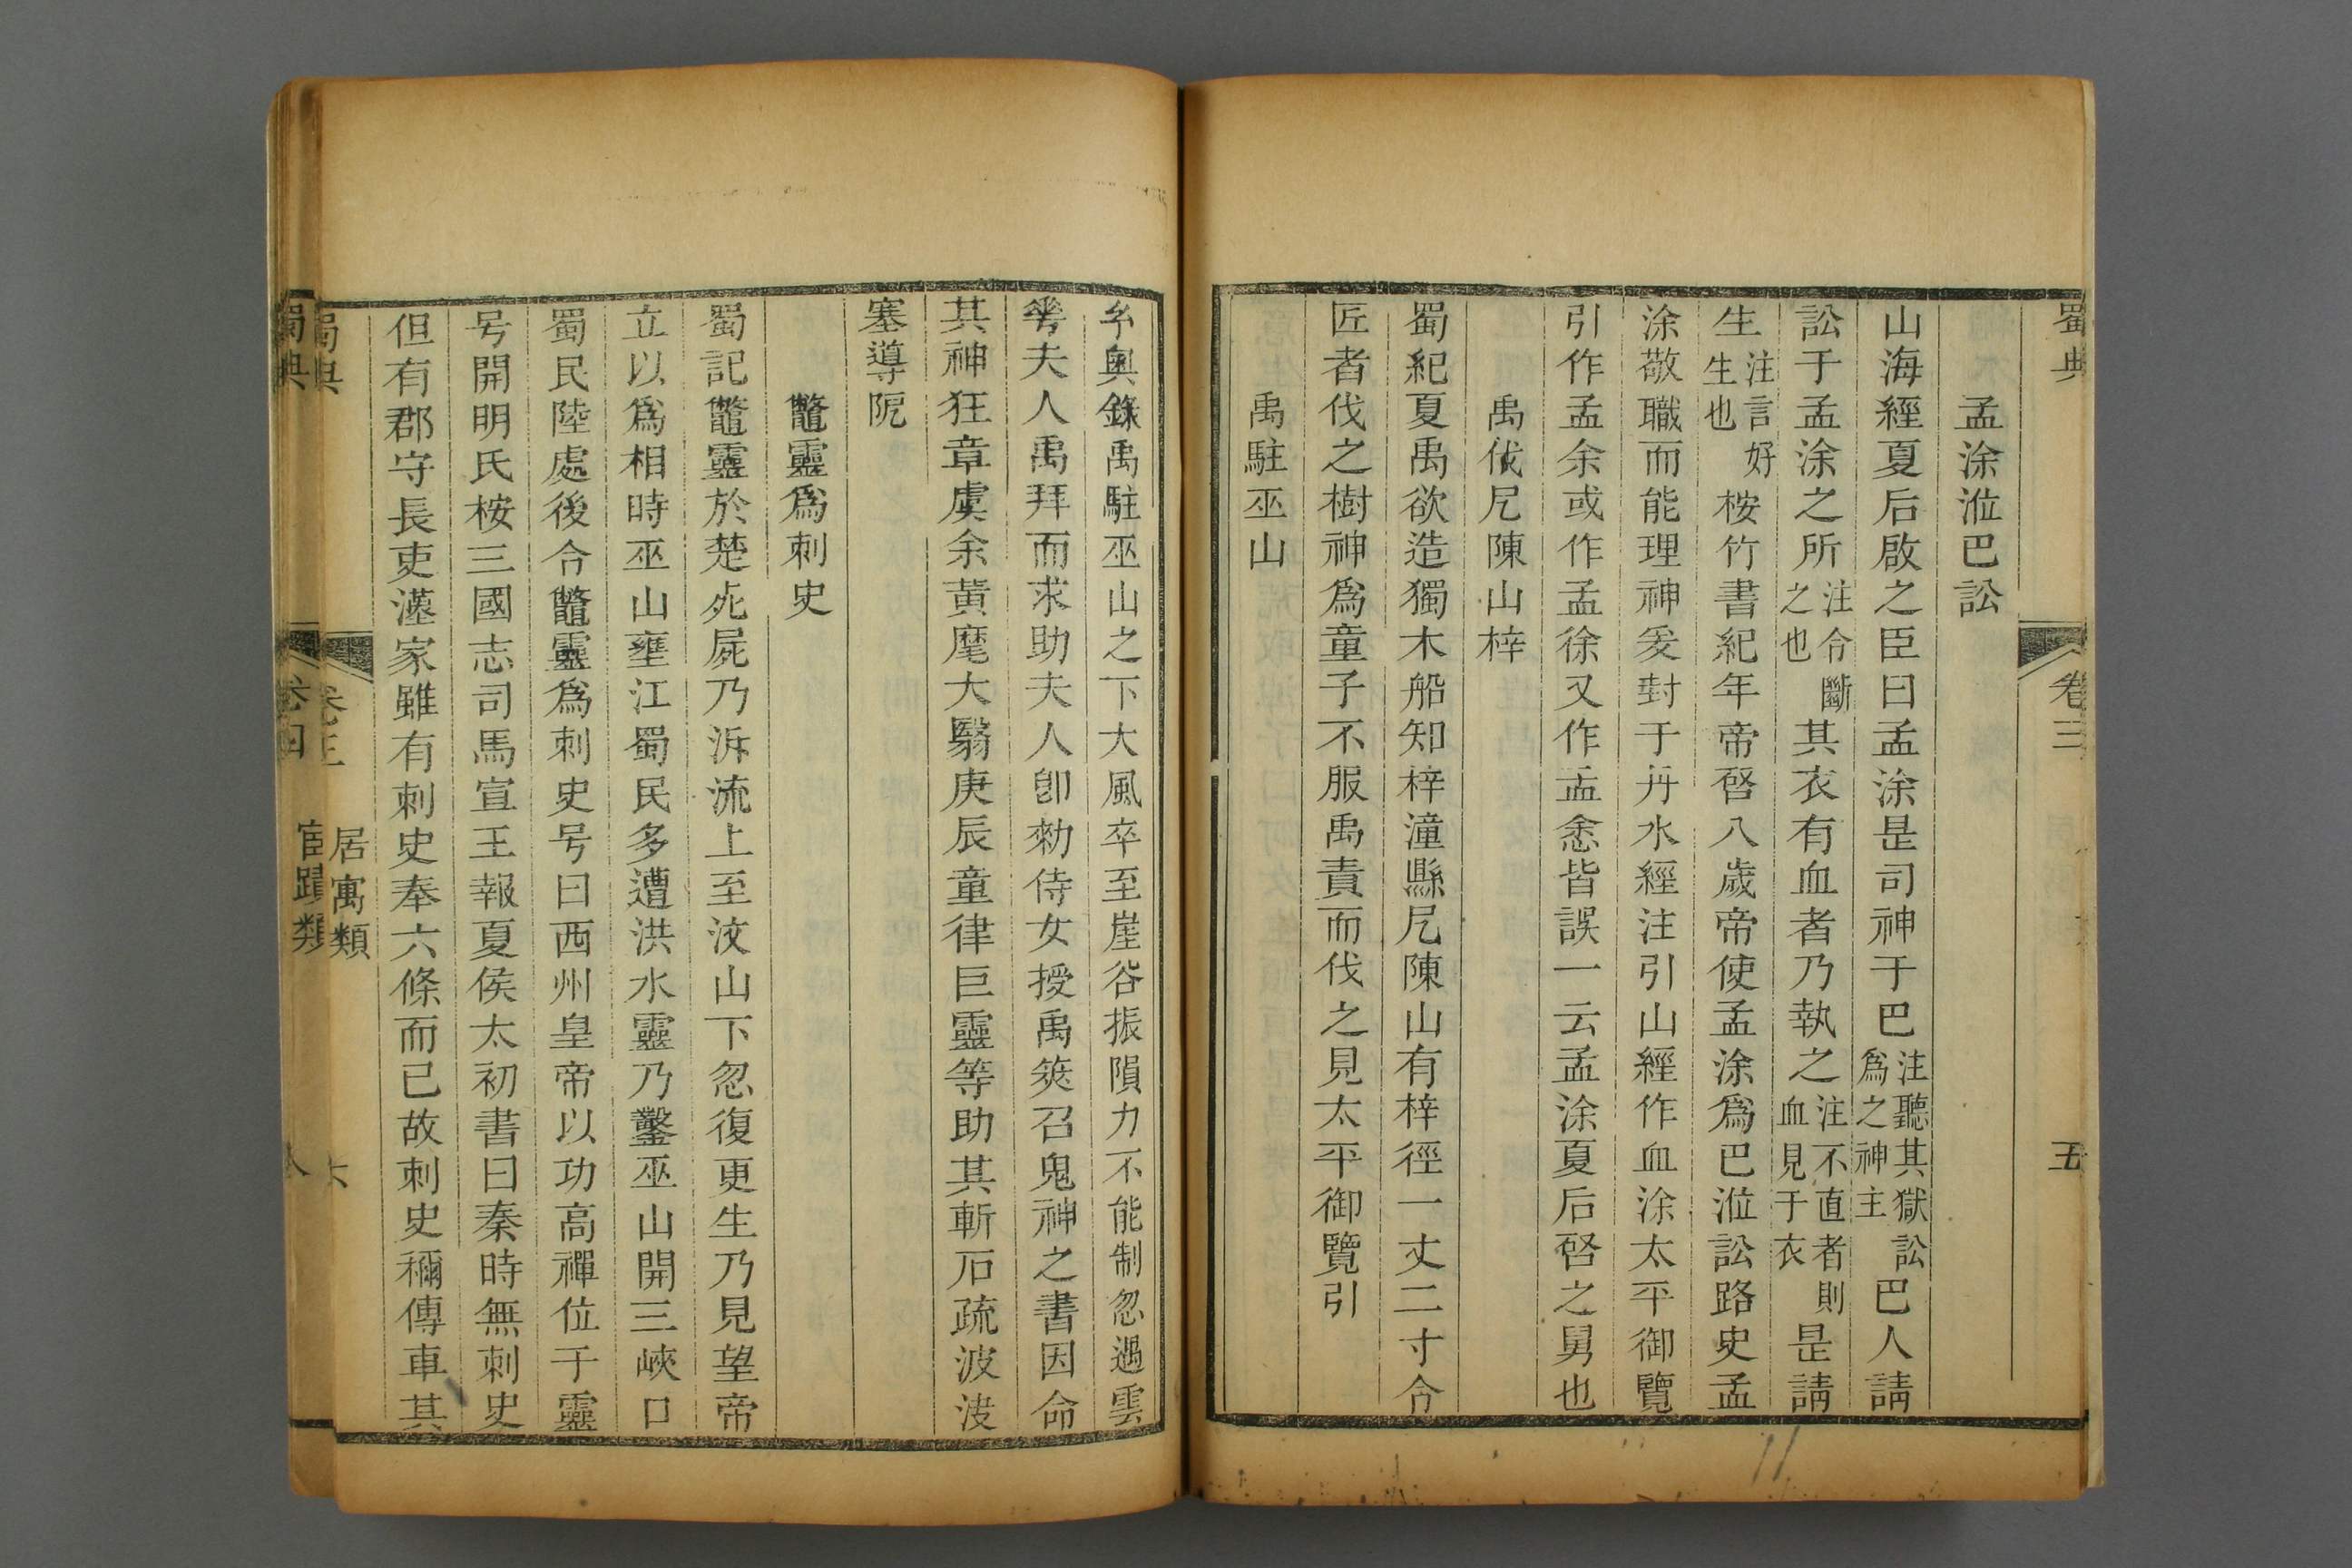 蜀典
卷三
五
孟涂涖巴訟
山海經夏后啟之臣曰孟涂是司神于巴注聽其獄訟爲之神主巴人請
訟于孟涂之所注令斷之也其衣有血者乃執之注不直者則血見于衣是請
生注言好生也桉竹書紀年帝啓八歲帝使孟涂爲巴涖訟路史孟
涂敬職而能理神爰封于丹水經注引山經作血涂太平御覽
引作孟余或作孟徐又作盂悆皆誤一云孟涂夏后啓之舅也
禹伐尼陳山梓
蜀紀夏禹欲造獨木船知梓潼縣尼陳山有梓徑一丈二寸令
匠者伐之樹神爲童子不服禹責而伐之見太平御覽引
禹駐巫山
幺奧錄禹駐巫山之下大風卒至崖谷振隕力不能制忽遇雲
華夫人禹拜而求助夫人卽勑侍女授禹筴召鬼神之書因命
其神狂章虞余黃麾大翳庚辰童律巨靈等助其斬石疏波决
塞導阨
鼈靈爲刺史
蜀記鼈靈於楚死屍乃泝流上至汶山下忽復更生乃見望帝
立以爲相時巫山壅江蜀民多遭洪水靈乃鑿巫山開三峽口
蜀民陸處後令鼈靈爲刺史号曰西州皇帝以功高禪位于靈
号開明氏桉三國志司馬宣王報夏侯太初書曰秦時無刺史
但有郡守長吏漢家雖有刺史奉六條而已故刺史稱傳車其
蜀典
卷三
居寓類
六
蜀典
卷四
宦蹟類